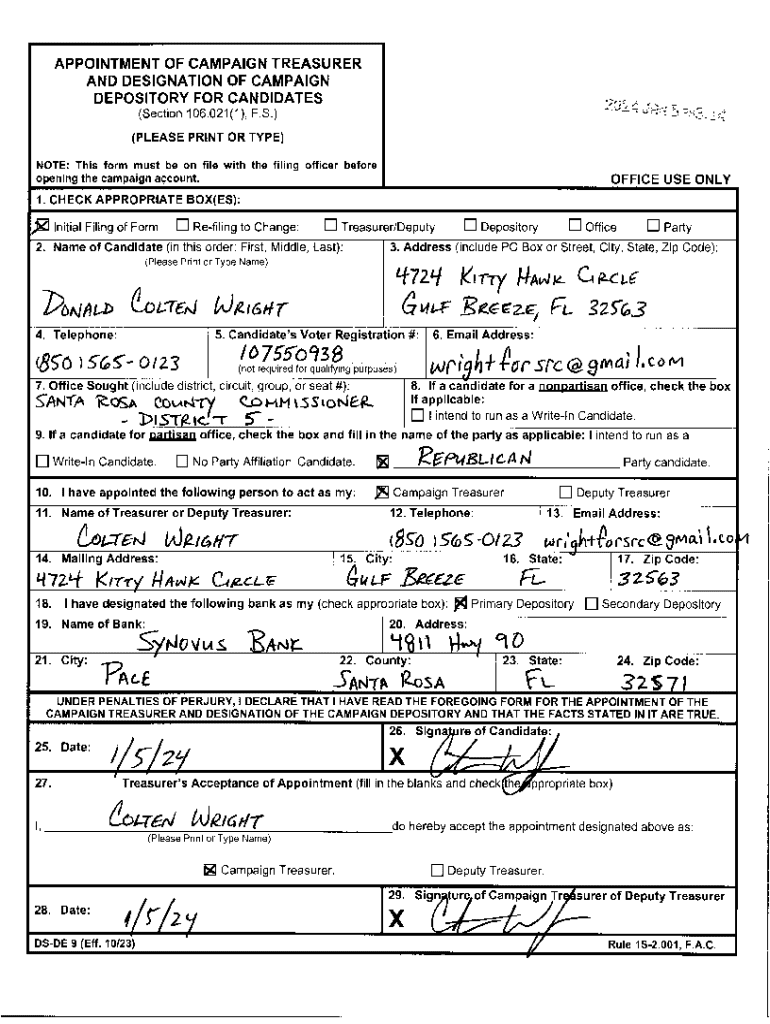 APPOINTMENT OF CAMPAIGN TREASURER
AND DESIGNATION OF CAMPAIGN
DEPOSITORY FOR CANDIDATES
(Section 106.021(1), F.S.)
(PLEASE PRINT OR TYPE)
NOTE: This form must be on file with the filing officer before
opening the campaign account.
OFFICE USE ONLY
1. CHECK APPROPRIATE BOX(ES):
Initial Filing of Form Re-filing to Change: Treasurer/Deputy Depository Office Party
2. Name of Candidate (in this order: First, Middle, Last):
(Please Print or Type Name)
DONALD COLTEN WRIGHT
3. Address (include PO Box or Street, City, State, Zip Code):
4724 KITTY HAWK CIRCLE
GULF BREEZE, FL 32563
4. Telephone:
(850) 565-0123
5. Candidate's Voter Registration #:
107550938
(not required for qualifying purposes)
6. Email Address:
wrightforsrc@gmail.com
7. Office Sought (include district, circuit, group, or seat #):
SANTA ROSA COUNTY COMMISSIONER
- DISTRICT 5 -
8. If a candidate for a nonpartisan office, check the box
if applicable:
I intend to run as a Write-In Candidate.
9. If a candidate for partisan office, check the box and fill in the name of the party as applicable: I intend to run as a
Write-In Candidate. No Party Affiliation Candidate. REPUBLICAN Party candidate.
10. I have appointed the following person to act as my: Campaign Treasurer Deputy Treasurer
11. Name of Treasurer or Deputy Treasurer:
COLTEN WRIGHT
12. Telephone:
(850) 565-0123
13. Email Address:
wrightforsrc@gmail.com
14. Mailing Address:
4724 KITTY HAWK CIRCLE
15. City:
GULF BREEZE
16. State:
FL
17. Zip Code:
32563
18. I have designated the following bank as my (check appropriate box): Primary Depository Secondary Depository
19. Name of Bank:
SYNOVUS BANK
20. Address:
4811 Hwy 90
21. City:
PACE
22. County:
SANTA ROSA
23. State:
FL
24. Zip Code:
32571
UNDER PENALTIES OF PERJURY, I DECLARE THAT I HAVE READ THE FOREGOING FORM FOR THE APPOINTMENT OF THE
CAMPAIGN TREASURER AND DESIGNATION OF THE CAMPAIGN DEPOSITORY AND THAT THE FACTS STATED IN IT ARE TRUE.
25. Date:
1/5/24
26. Signature of Candidate:
X
27. Treasurer's Acceptance of Appointment (fill in the blanks and check the appropriate box)
I, COLTEN WRIGHT do hereby accept the appointment designated above as:
(Please Print or Type Name)
Campaign Treasurer. Deputy Treasurer.
28. Date:
1/5/24
29. Signature of Campaign Treasurer of Deputy Treasurer
X
DS-DE 9 (Eff. 10/23)
Rule 1S-2.001, F.A.C.